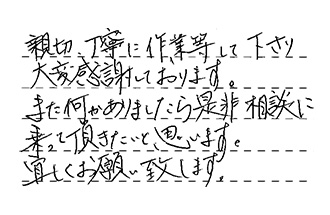 親切、丁寧に作業等して下さり
大変感謝しております。
また何かありましたら是非相談に
乗って頂きたいと思います。
宜しくお願い致します。